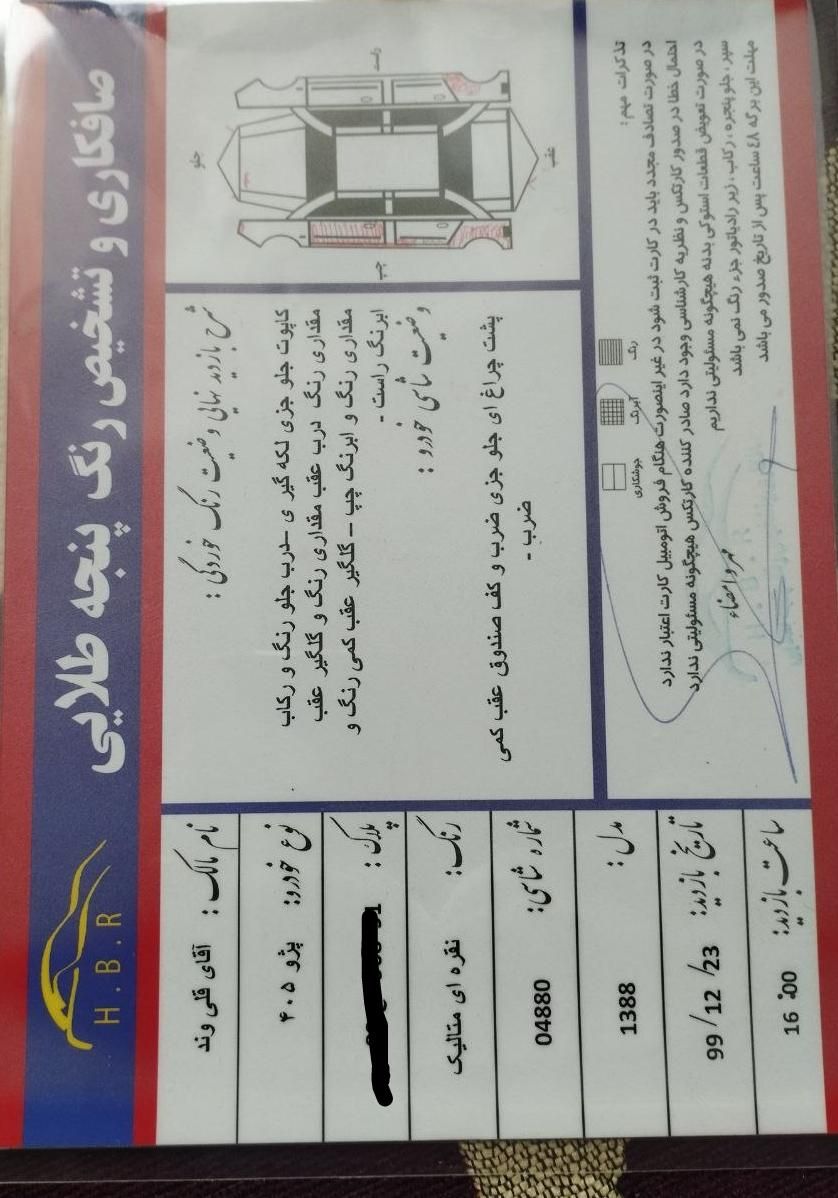 صافکاری و تشخیص رنگ پنجه طلایی
H.B.R
نام مالک : آقای قلی وند
نوع خودرو: پژو ۴۰۵
پلاک :
رنگ: نقره ای متالیک
شماره شاسی: 04880
مدل : 1388
تاریخ بازدید: 99/12/23
ساعت بازدید: 16:00
شرح بازدید نهایی وضعیت رنگ خوردگی :
کاپوت جلو جزی لکه گیر ی -درب جلو رنگ و رکاب
مقداری رنگ درب عقب مقداری رنگ و گلگیر عقب
مقداری رنگ و ابرنگ چپ - گلگیر عقب کمی رنگ و
ابرنگ راست -
وضعیت شاسی خودرو :
پشت چراغ ای جلو جزی ضرب و کف صندوق عقب کمی
ضرب -
راست
جلو
عقب
چپ
تذکرات مهم :
در صورت تصادف مجدد باید در کارت ثبت شود در غیر اینصورت هنگام فروش اتومبیل کارت اعتبار ندارد
احتمال خطا در صدور کارتکس و نظریه کارشناسی وجود دارد صادر کننده کارتکس هیچگونه مسئولیتی ندارد
در صورت تعویض قطعات استوکی بدنه هیچگونه مسئولیتی نداریم
سپر ، جلو پنجره ، رکاب ، زیر رادیاتور جزء رنگ نمی باشد
مهلت این برگه ۴۸ ساعت پس از تاریخ صدور می باشد
رنگ
آبرنگ
جوشکاری
مهر و امضاء